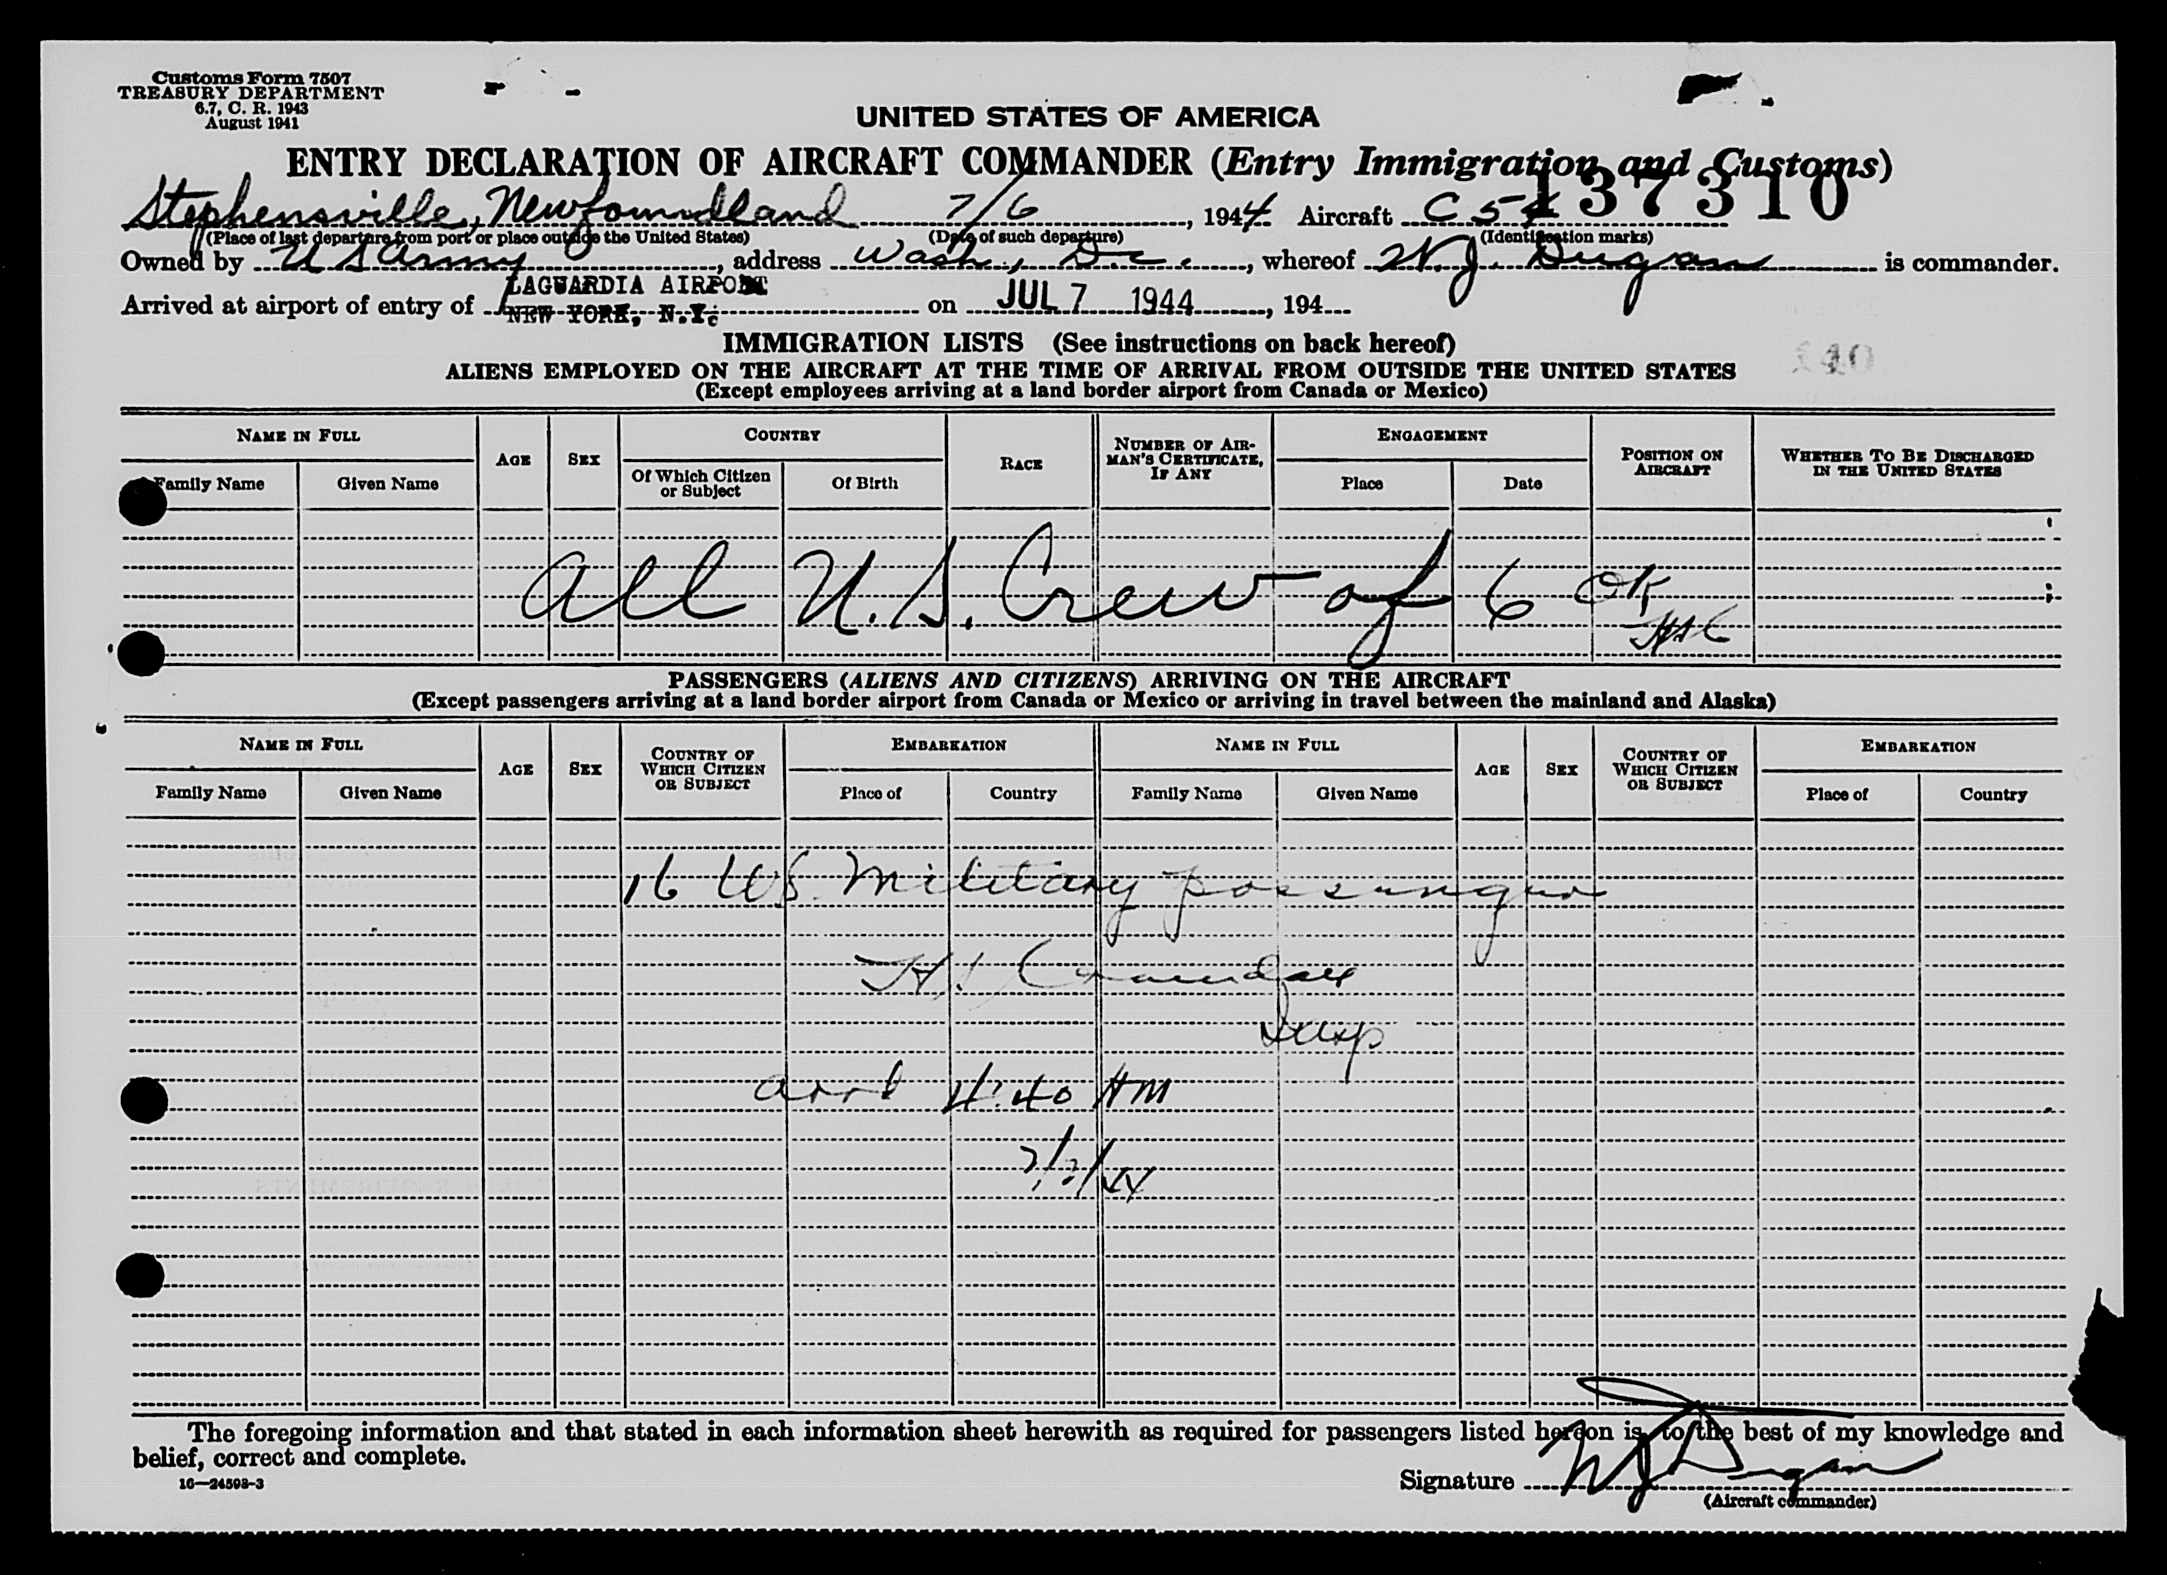 Customs Form 7507
TREASURY DEPARTMENT
6.7, C. R. 1943
August 1941
UNITED STATES OF AMERICA
ENTRY DECLARATION OF AIRCRAFT COMMANDER (Entry Immigration and Customs)
137310
Stephensville, Newfoundland 7/6, 1944 Aircraft C 54
(Place of last departure from port or place outside the United States) (Date of such departure) (Identification marks)
Owned by US Army, address Wash., D.C., whereof W.J. Dugan is commander.
LAGUARDIA AIRPORT
Arrived at airport of entry of NEW YORK, N.Y. on JUL 7 1944, 194
IMMIGRATION LISTS (See instructions on back hereof)
ALIENS EMPLOYED ON THE AIRCRAFT AT THE TIME OF ARRIVAL FROM OUTSIDE THE UNITED STATES
(Except employees arriving at a land border airport from Canada or Mexico)
NAME IN FULL AGE SEX COUNTRY RACE NUMBER OF AIRMAN'S CERTIFICATE, IF ANY ENGAGEMENT POSITION ON AIRCRAFT WHETHER TO BE DISCHARGED IN THE UNITED STATES
Family Name Given Name Of Which Citizen or Subject Of Birth Place Date
all U.S. Crew of 6 OK
HSC
PASSENGERS (ALIENS AND CITIZENS) ARRIVING ON THE AIRCRAFT
(Except passengers arriving at a land border airport from Canada or Mexico or arriving in travel between the mainland and Alaska)
NAME IN FULL AGE SEX COUNTRY OF WHICH CITIZEN OR SUBJECT EMBARKATION NAME IN FULL AGE SEX COUNTRY OF WHICH CITIZEN OR SUBJECT EMBARKATION
Family Name Given Name Place of Country Family Name Given Name Place of Country
16 US. Military passengers
Insp
arrd 4:40 AM
7/7/44
The foregoing information and that stated in each information sheet herewith as required for passengers listed hereon is, to the best of my knowledge and
belief, correct and complete.
16—24593-3
Signature WJ Dugan
(Aircraft commander)